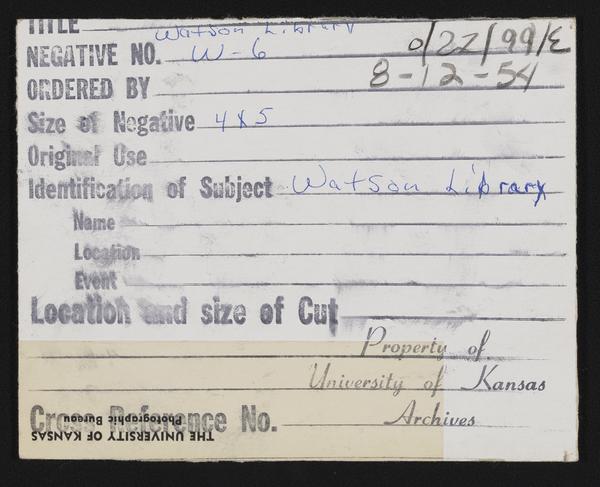 TITLE Watson Library
NEGATIVE NO. W-6 0/22/99/E
ORDERED BY 8-12-54
Size of Negative 4X5
Original Use
Identification of Subject Watson Library
Name
Location
Event
Location and size of Cut
Property of
University of Kansas
Archives
Cross Reference No.
THE UNIVERSITY OF KANSAS
Photographic Bureau